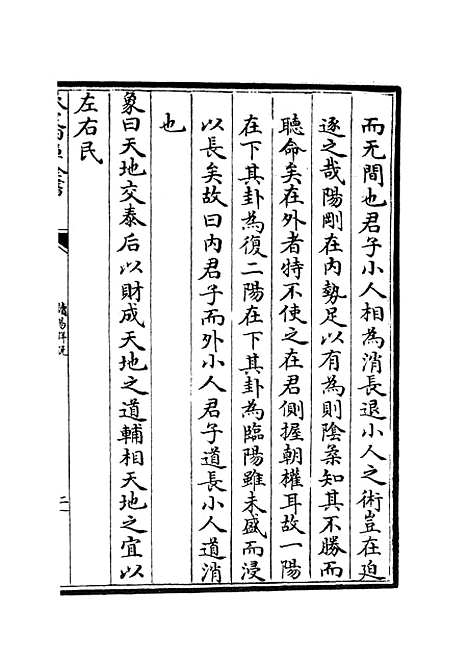 而无間也君子小人相為消長退小人之術豈在迫
逐之哉陽剛在内勢足以有為則陰柔知其不勝而
聽命矣在外者特不使之在君側握朝權耳故一陽
在下其卦為復二陽在下其卦為臨陽雖未盛而浸
以長矣故曰内君子而外小人君子道長小人道消
也
象曰天地交泰后以財成天地之道輔相天地之宜以
左右民
讀易詳説